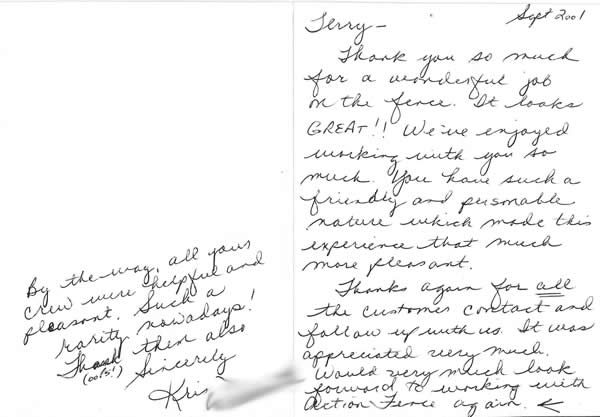 Sept 2001
Terry—
Thank you so much
for a wonderful job
on the fence. It looks
GREAT!! We've enjoyed
working with you so
much. You have such a
friendly and personable
nature which made this
experience that much
more pleasant.
Thanks again for all
the customer contact and
follow up with us. It was
appreciated very much.
Would very much look
forward to working with
Action Fence again.
By the way, all your
crew were helpful and
pleasant. Such a
rarity nowadays!
Thank them also
(oops!)
Sincerely
Kris